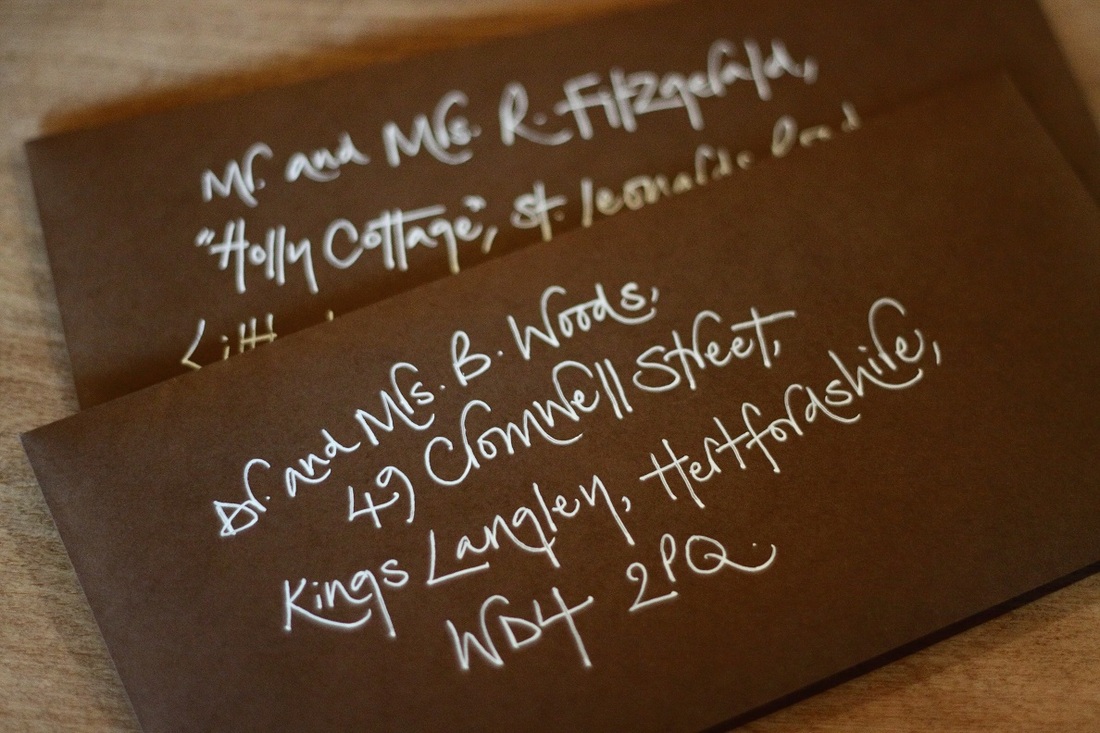 Mr. and Mrs. R. Fitzgerald,
"Holly Cottage", St. Leonards Road
Dr. and Mrs. B. Woods,
49 Cromwell Street,
Kings Langley, Hertfordshire,
WD4 2PQ.